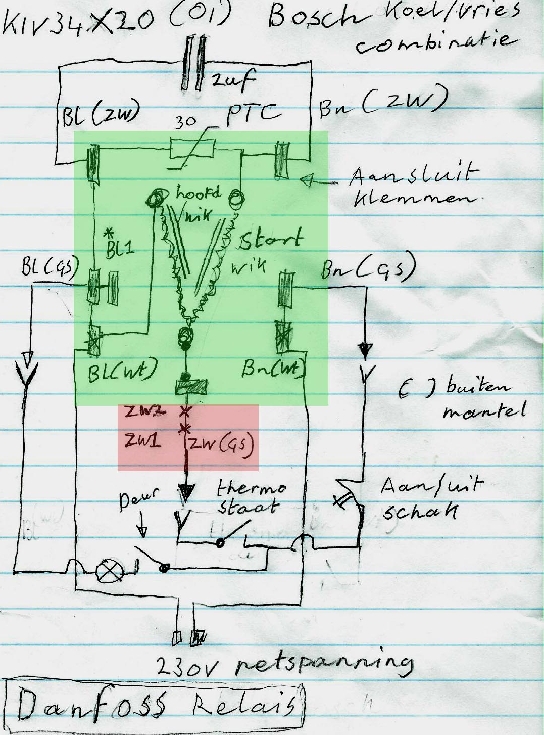 KIV34X20 (01) Bosch Koel/vries
combinatie
2uf
Bl(zw)
30
PTC
Bn(zw)
Aansluit
klemmen
hoofd
wik
*
BL1
Start
wik
Bl(gs)
Bn(gs)
Bl(wt)
Bn(wt)
( ) buiten
mantel
zw2
zw1
zw(gs)
Deur
thermo
staat
Aansluit
schak
230v netspanning
Danfoss Relais